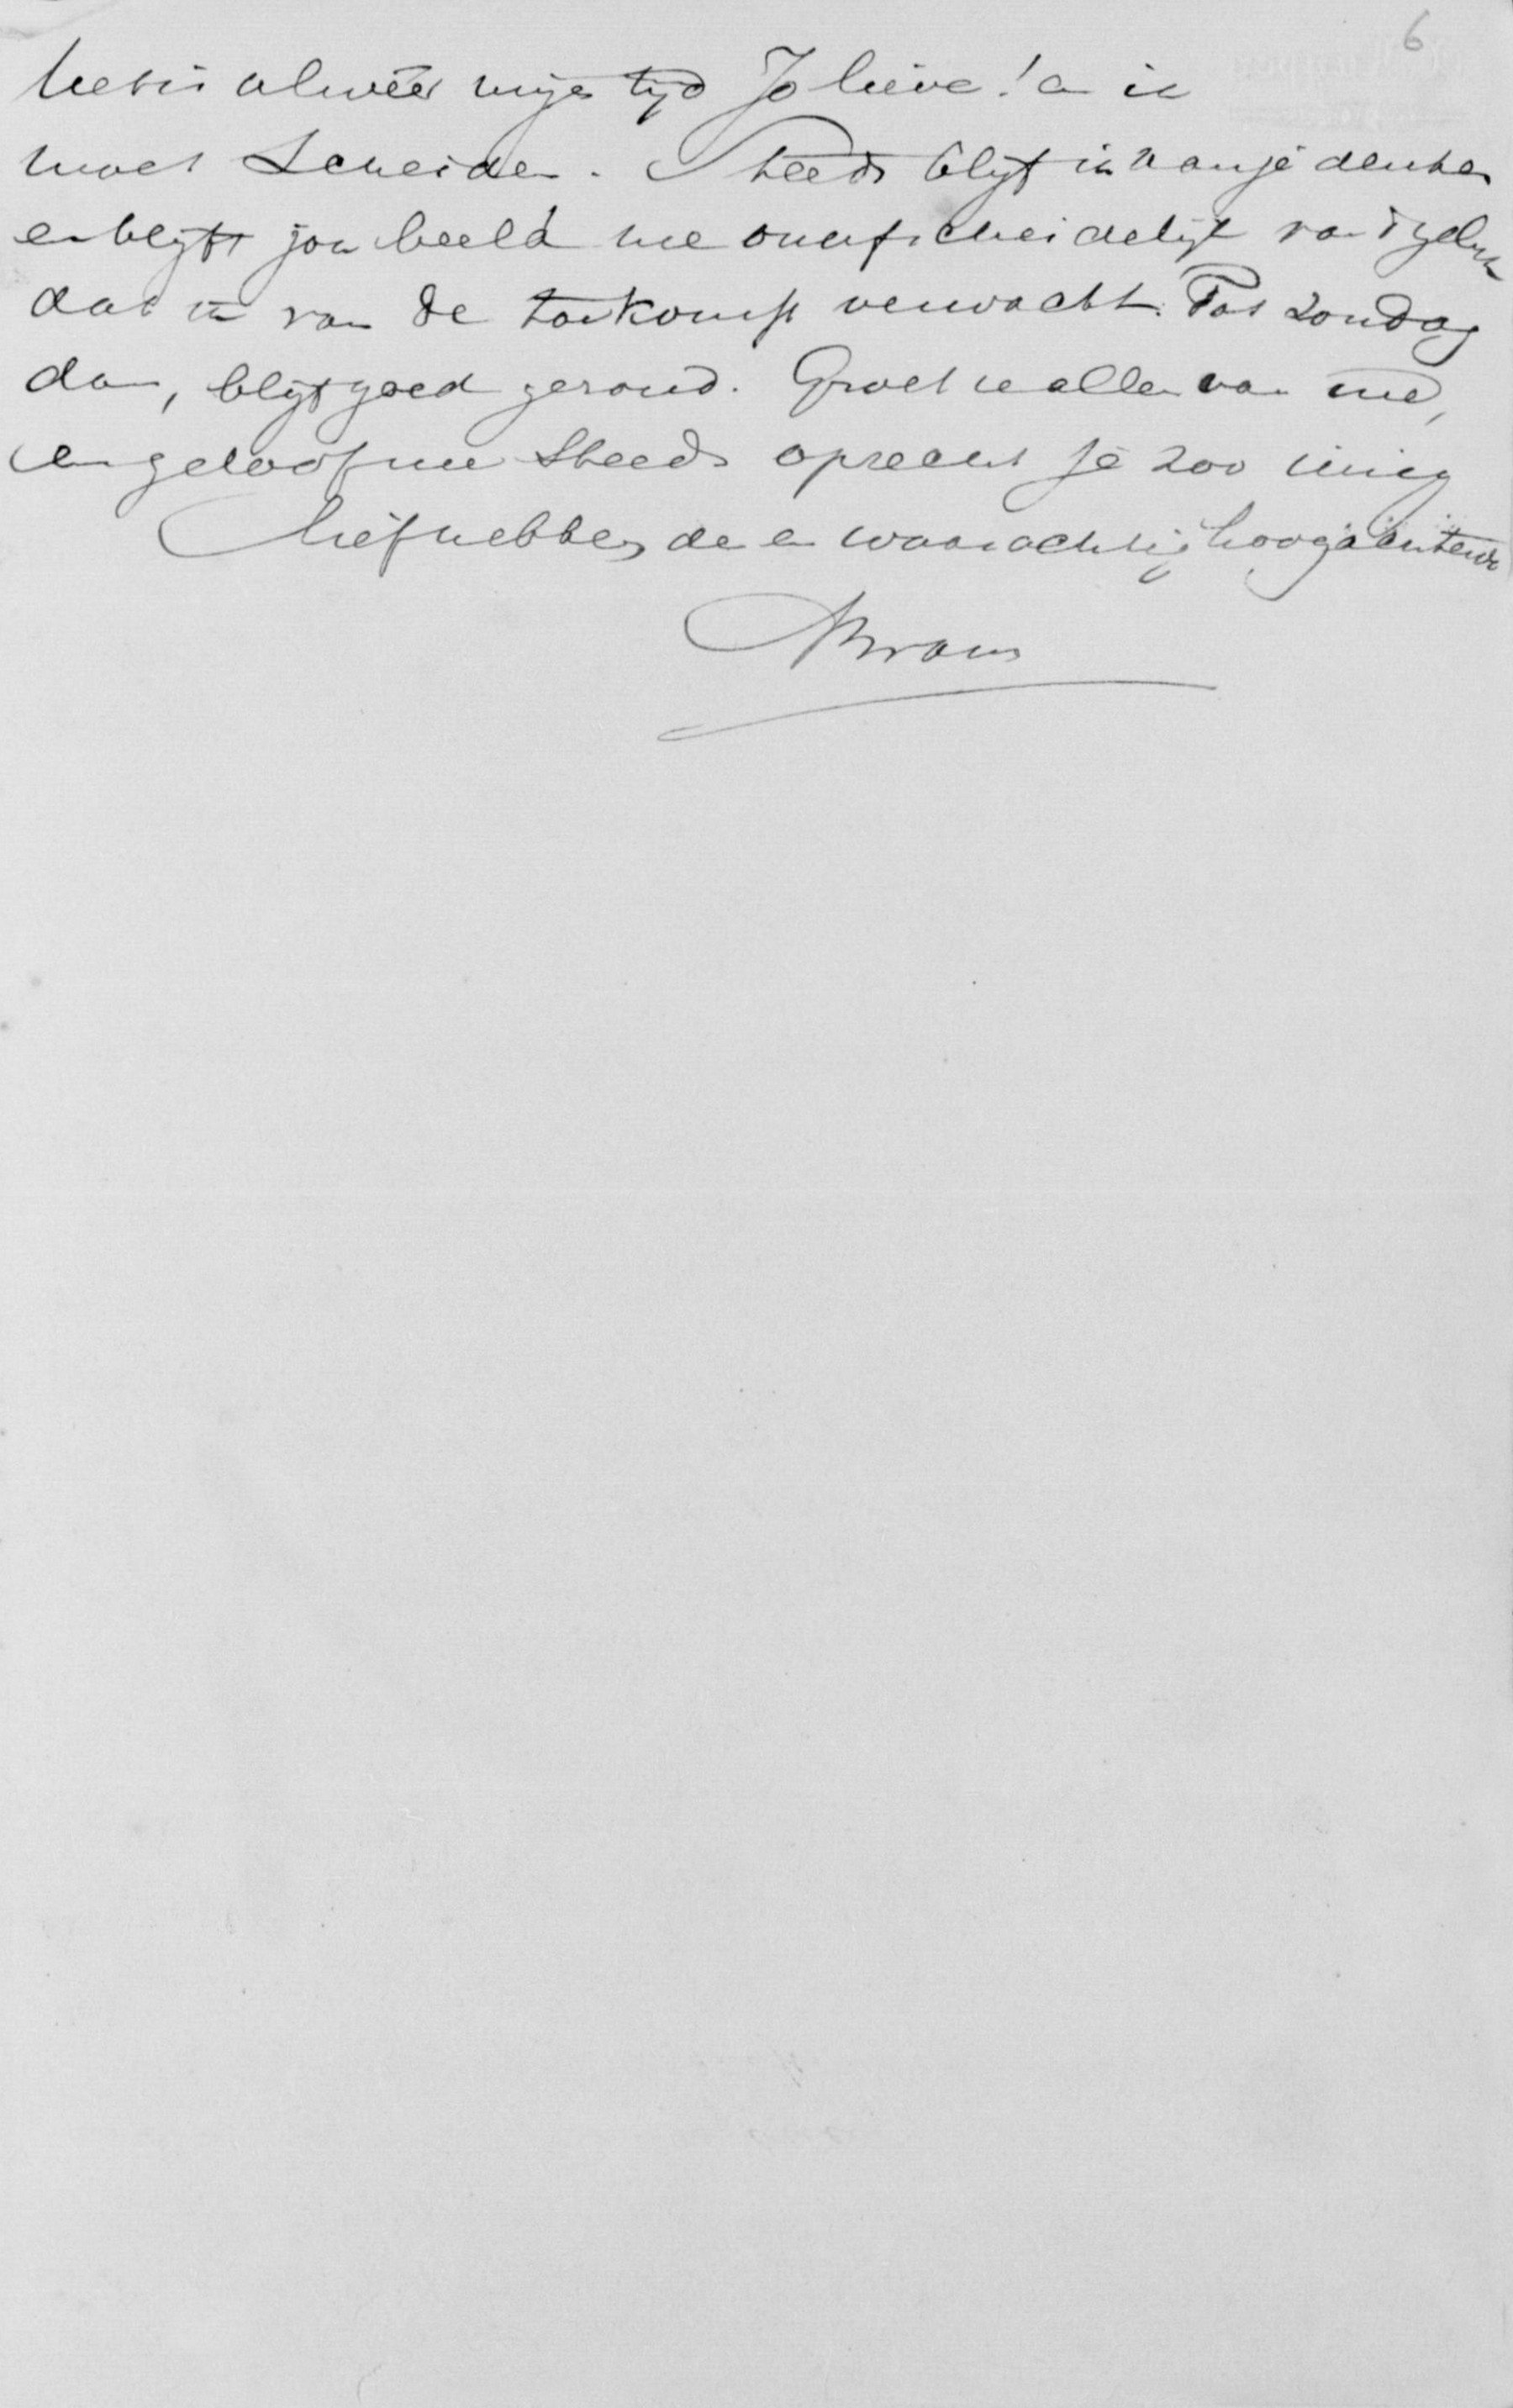 6
het is alweer mijn tijd Jo lieve! en ik
moet scheiden. Steeds blijf ik aan je denken
en blijft jou beeld me onafscheidelijk van
dat ik van de toekomst verwacht. Tot Zondag
dan, blijf goed gezond. Groet ze allen van me,
en geloof me steeds oprecht je zoo innig
liefhebbende en waarachtig hoogachtende
Bram